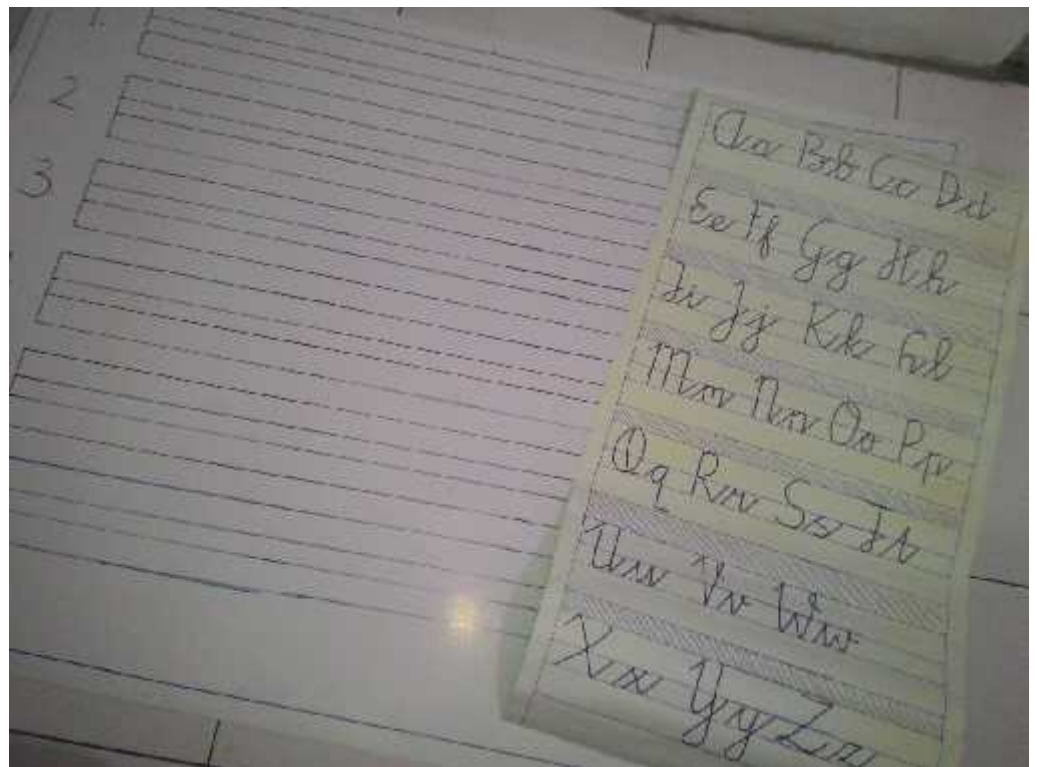 1.
2
3
Aa Bb Cc Dd
Ee Ff Gg Hh
Ii Jj Kk Ll
Mm Nn Oo Pp
Qq Rr Ss Tt
Uu Vv Ww
Xx Yy Zz